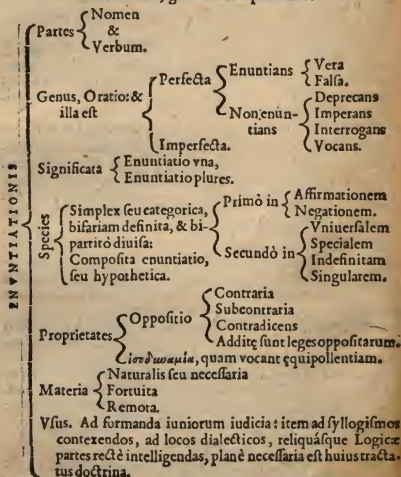 ENVNTIATIONIS
Partes
Nomen
&
Verbum.
Genus, Oratio: &
illa est
Perfecta
Enuntians
Vera
Falsa.
Non enun-
tians
Deprecans
Imperans
Interrogans
Vocans.
Imperfecta.
Significata
Enuntiatio vna,
Enuntiatio plures.
Species
Simplex seu categorica,
bifariam definita, & bi-
partitò diuisa:
Composita enuntiatio,
seu hypothetica.
Primò in
Affirmationem
Negationem.
Secundò in
Vniuersalem
Specialem
Indefinitam
Singularem.
Proprietates
Oppositio
Contraria
Subcontraria
Contradicens
Additę sunt leges oppositarum.
ἰσοδυναμία, quam vocant ęquipollentiam.
Materia
Naturalis seu necessaria
Fortuita
Remota.
Vsus. Ad formanda iuniorum iudicia: item ad syllogismos
contexendos, ad locos dialecticos, reliquásque Logicæ
partes rectè intelligendas, planè necessaria est huius tracta-
tus doctrina.